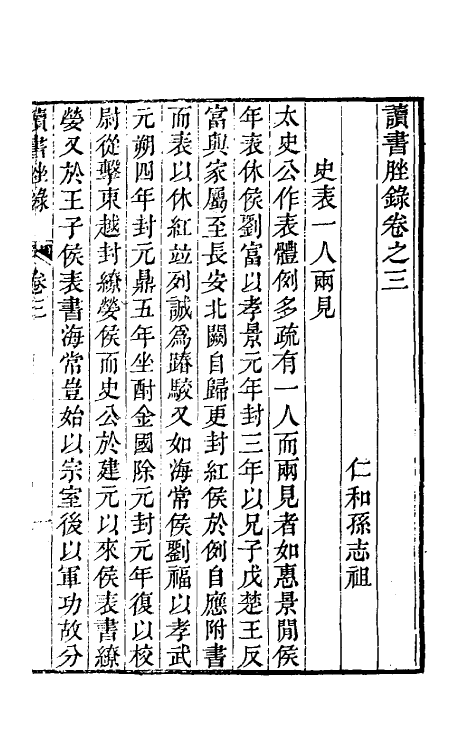 讀書脞錄卷之三
仁和孫志祖
史表一人兩見
太史公作表體例多疏有一人而兩見者如惠景閒侯
年表休侯劉富以孝景元年封三年以兄子戊楚王反
富與家屬至長安北闕自歸更封紅侯於例自應附書
而表以休紅竝列誠爲踳駮又如海常侯劉福以孝武
元朔四年封元鼎五年坐酎金國除元封元年復以校
尉從擊東越封繚嫈侯而史公於建元以來侯表書繚
嫈又於王子侯表書海常豈始以宗室後以軍功故分
讀書脞錄 卷三 一